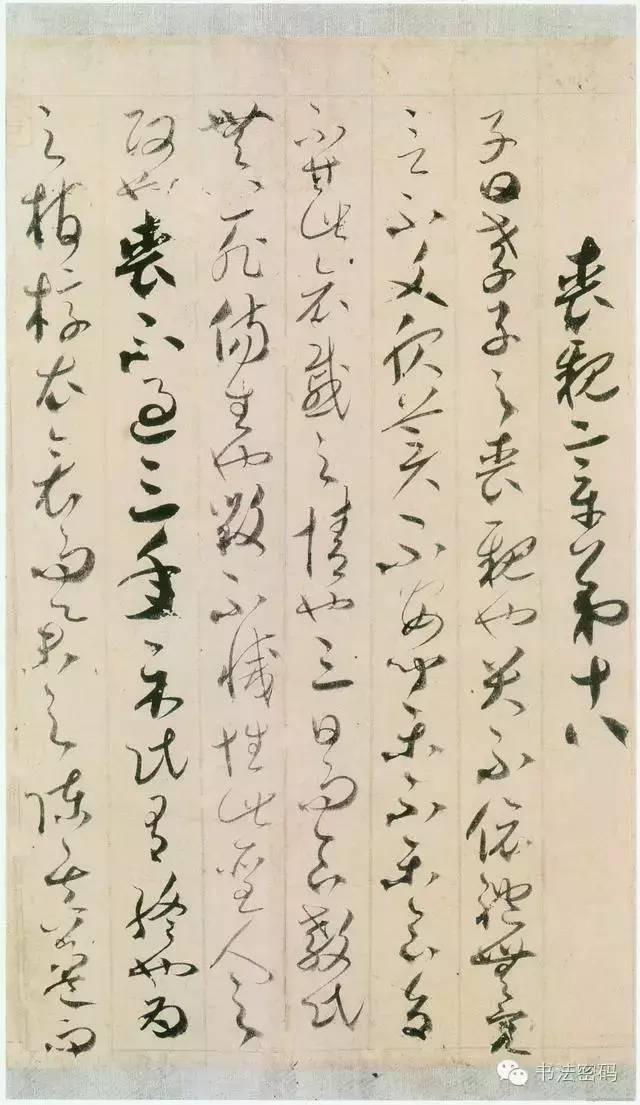 喪親章第十八
子曰孝子之喪親也哭不偯禮無容
言不文服美不安聞樂不樂食旨
不甘此哀慼之情也三日而食教民
無以死傷生也毀不滅性此聖人之
政也喪不過三年示民有終也為
之棺椁衣衾而舉之陳其簠簋而
书法密码